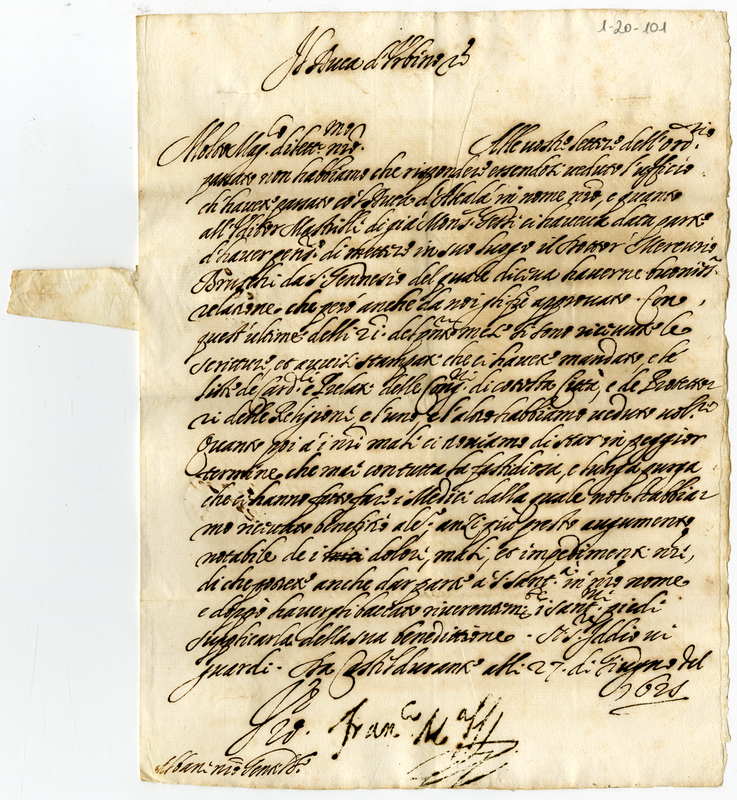 1-20-101
Il Duca d'Urbino
Molto Mag.co dilett.mo nro. Alle vostre lettere dell'ord.rio
passato non habbiamo che rispondere essendosi veduto l'ufficio
ch'havete passato co'l Duca d'Alcalà in nome nro, e quanto
all' Mastrilli di già Mons.r ci haveva data parte
d'haver di mettere in suo luogo il Dottor Mercurio
Brunchi da S. Gennesio del quale diceva haverne buoniss.a
relatione, che però anche da noi gli fù approvato. Con
quest'ultime delli 21. del pnte mese si sono ricevute le
scritture, et avvisi stampati che ci havete mandato e le
liste de Card.li e Prelati delle Cong.ni di cotesta Città, e de Protetto-
ri delle Religioni, e l'uno, e l'altro habbiamo veduto vol.ri
Quanto poi a i nri mali ci troviamo di star in peggior
termine, che mai con tutta la fastidiosa, e lunga purga
che ci hanno fatto fare i Medici dalla quale non habbia-
mo ricevuto beneficio alc.o anzi più presto augumento
notabile de i dolori, mali, et impedimenti nri,
di che potrete anche dar parte a S. Sant.à in nro nome
e doppo havergli baciato riverentem.te i sant.mi piedi
supplicarla della sua benedittione. Et Iddio vi
guardi. Da Casteldurante alli 27. di Giugno del
1625
Fran.co M.a